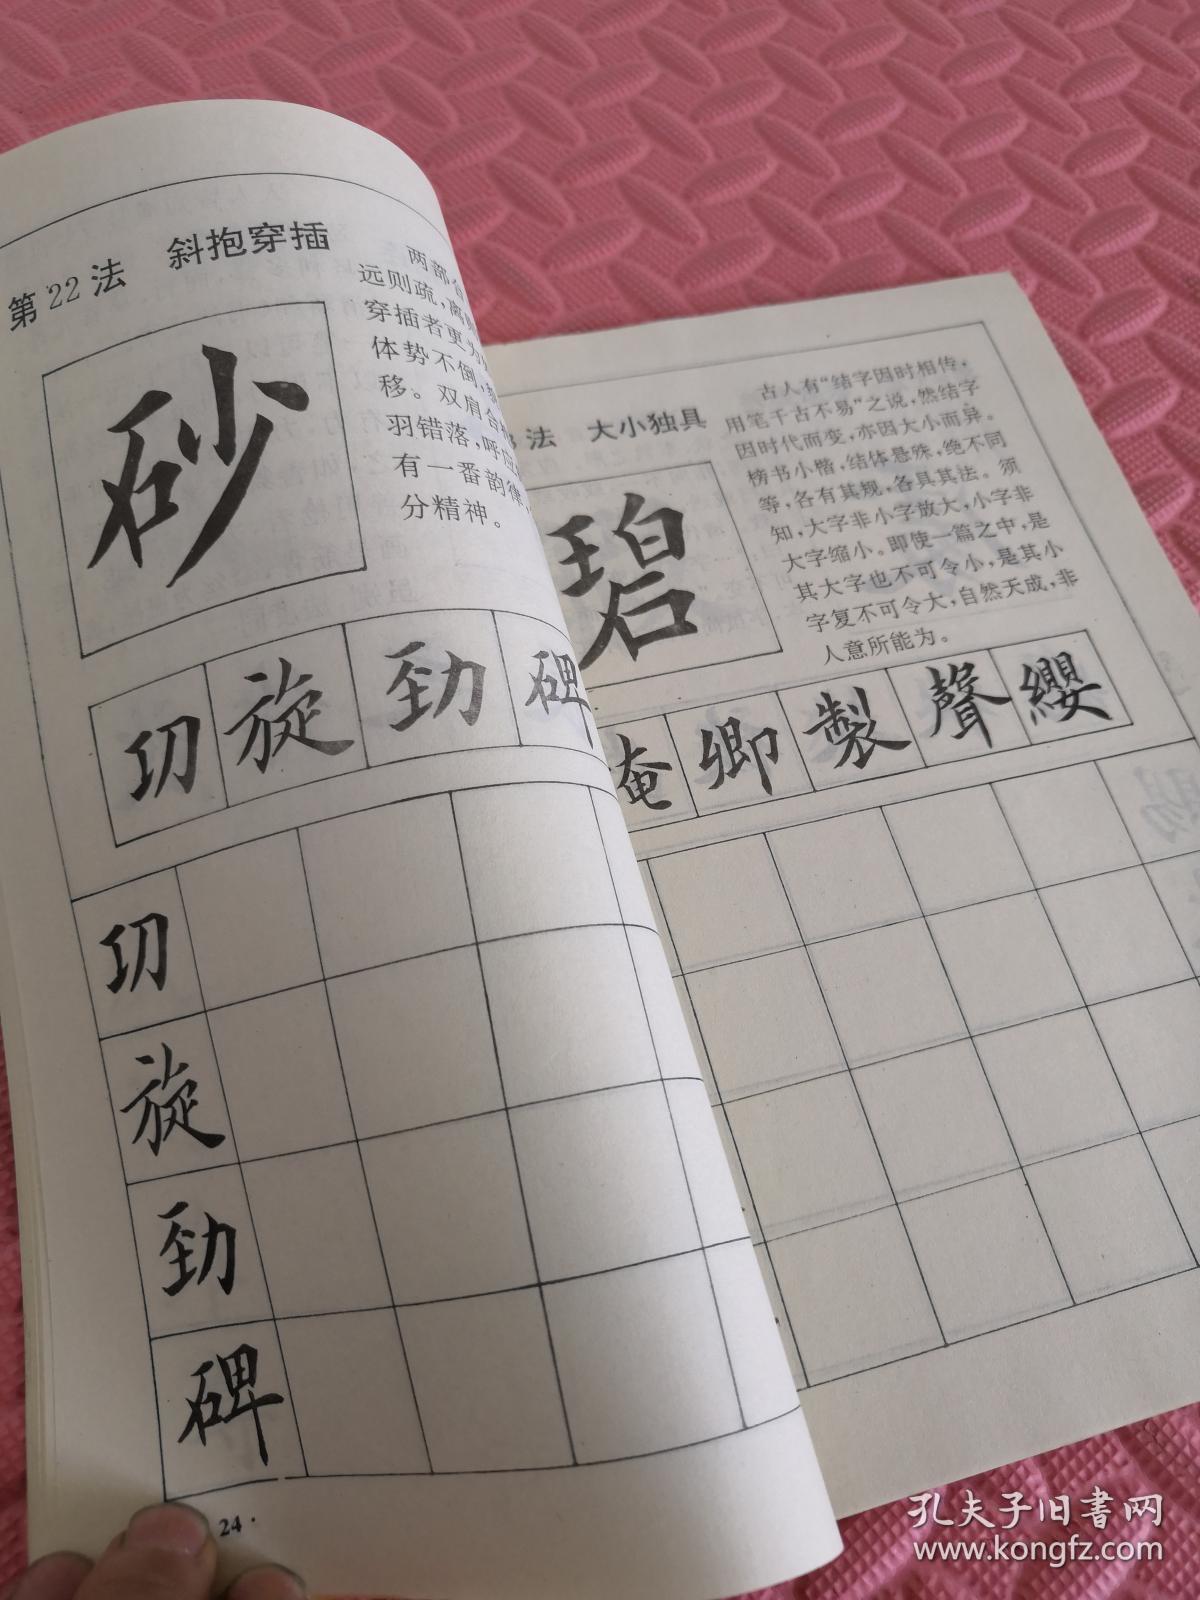 第22法 斜抱穿插
两部合
远则疏,离
穿插者更为
体势不倒,
移。双肩合
羽错落,呼应
有一番韵律,
分精神。
砂
㓛 旋 劲 碑
㓛
旋
劲
碑
24·
法 大小独具
古人有“结字因时相传,
用笔千古不易”之说,然结字
因时代而变,亦因大小而异。
榜书小楷,结体悬殊,绝不同
等,各有其规,各具其法。须
知,大字非小字放大,小字非
大字缩小。即使一篇之中,是
其大字也不可令小,是其小
字复不可令大,自然天成,非
人意所能为。
碧
卿 製 聲 纓
孔夫子旧书网
www.kongfz.com